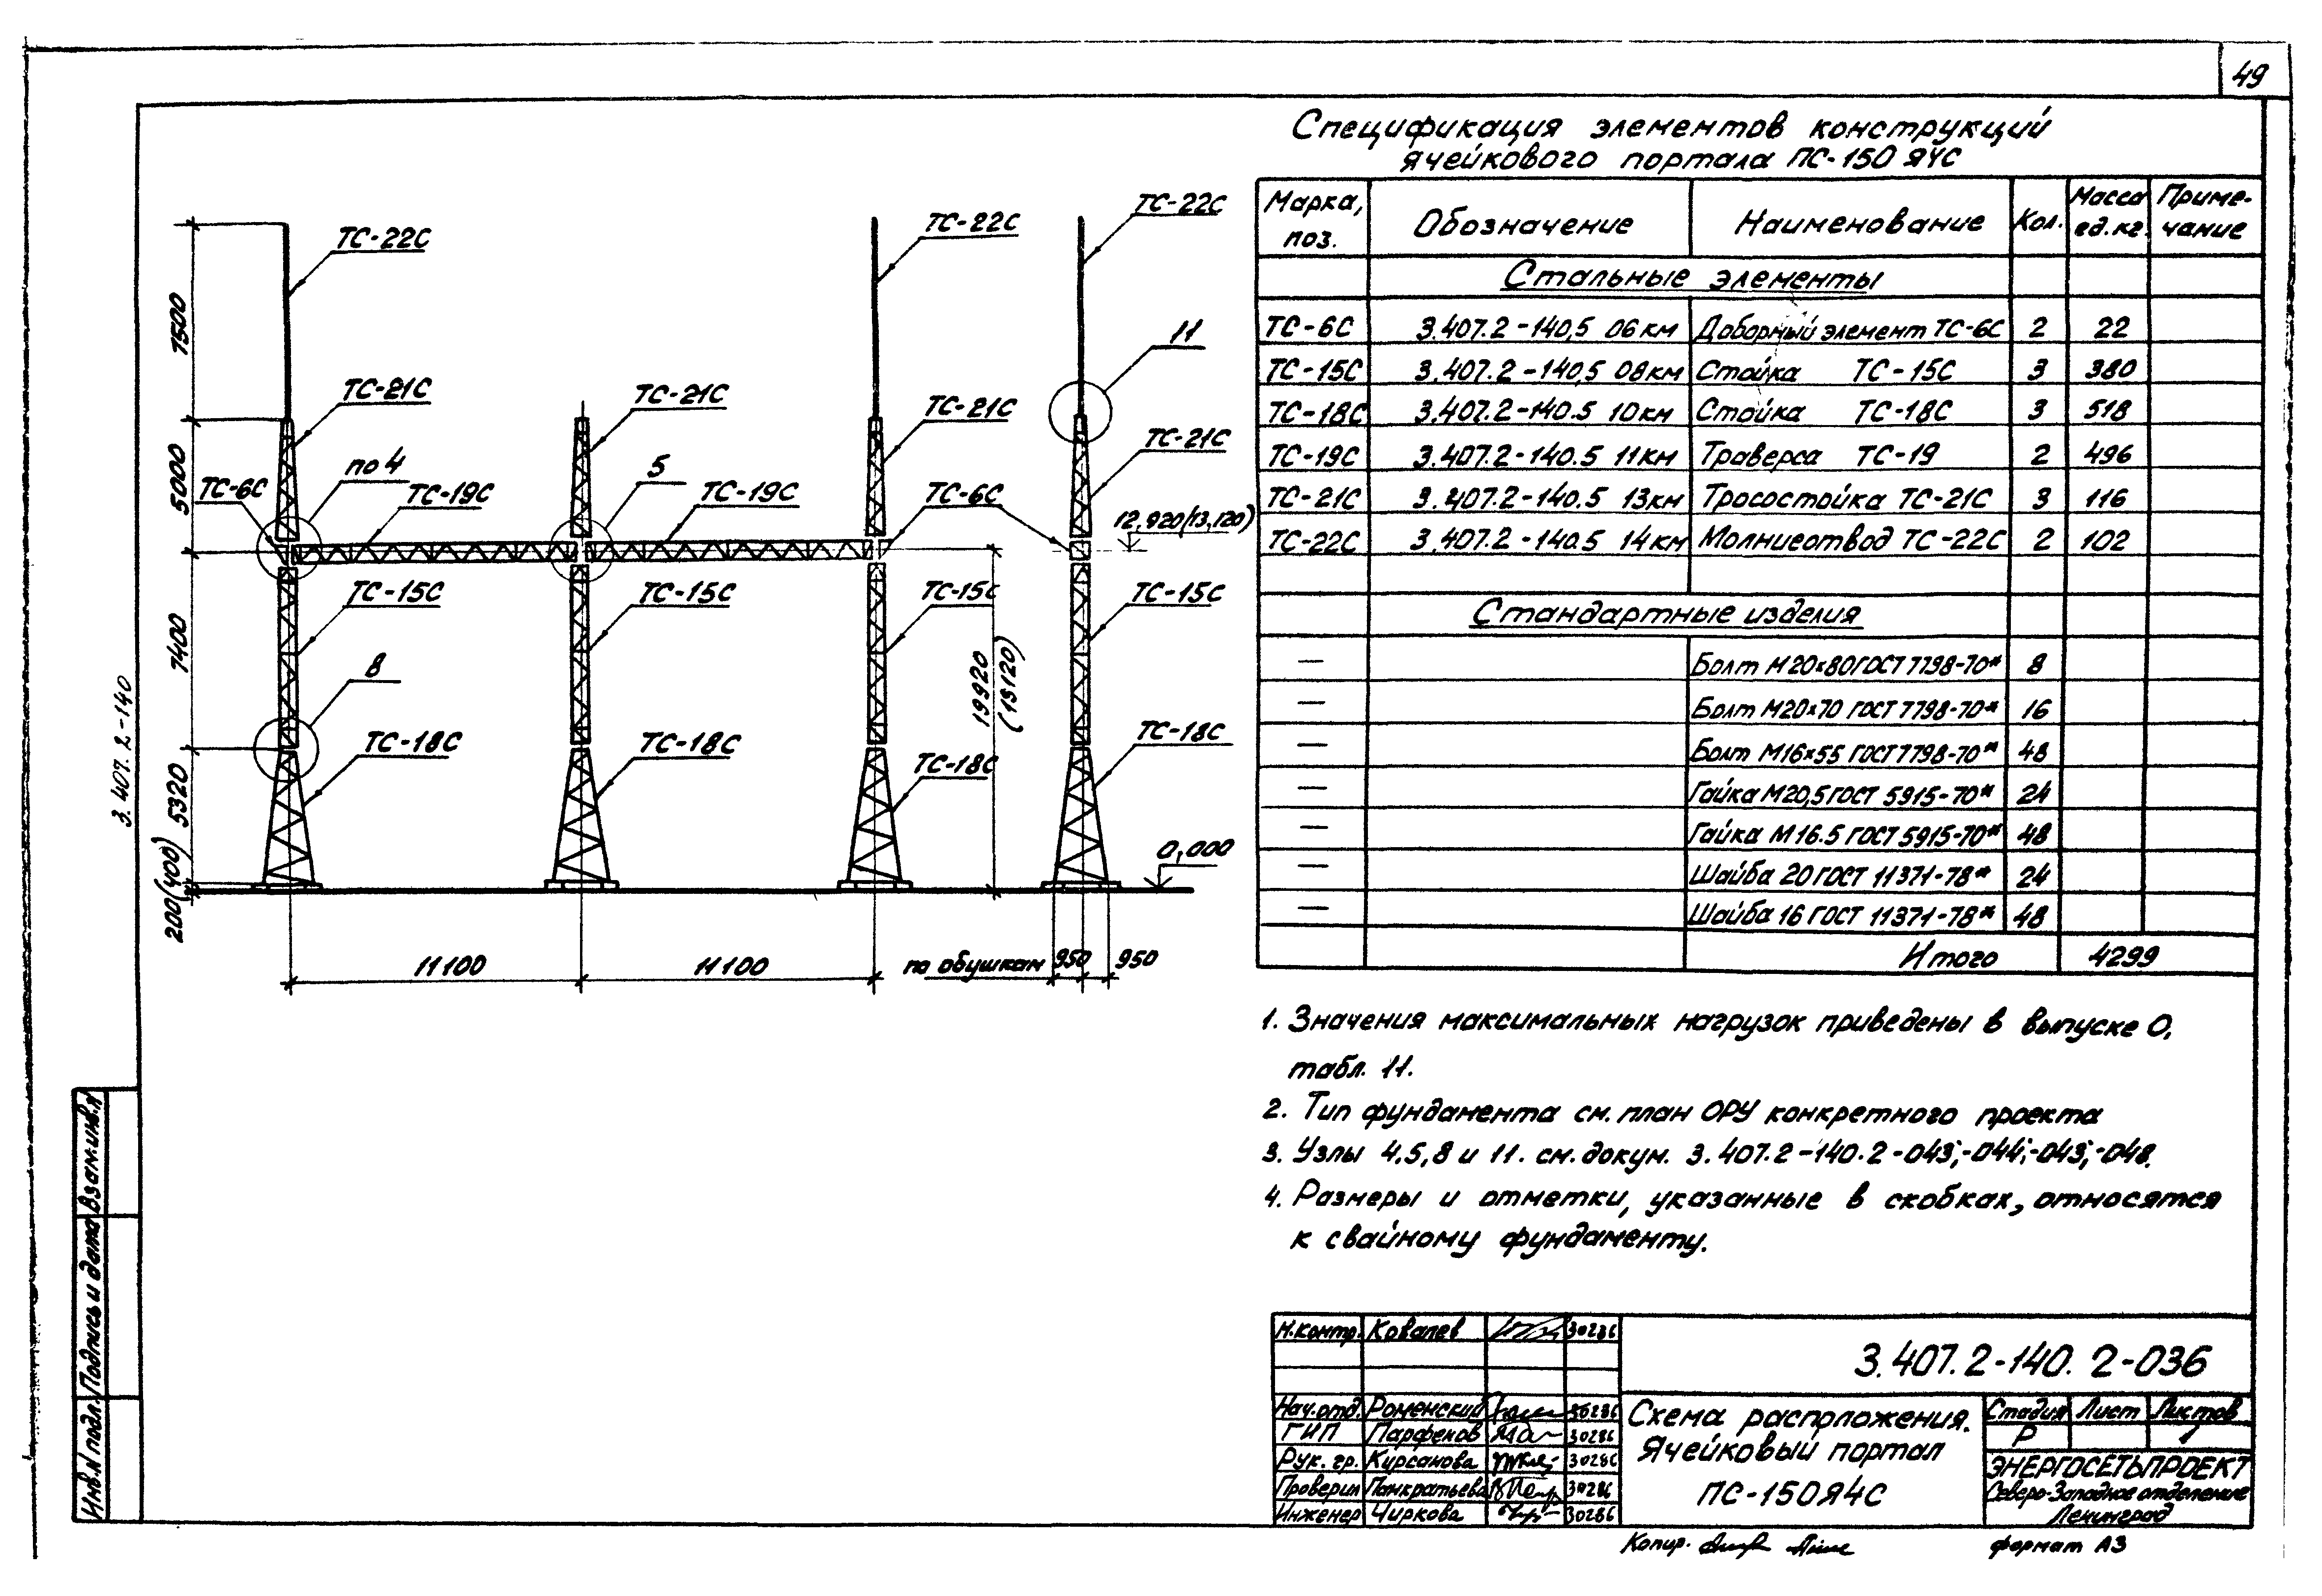 49
Спецификация элементов конструкций
ячейкового портала ПС-150 Я4С
Марка, поз. Обозначение Наименование Кол. Масса ед.кг. Приме-чание
Стальные элементы
ТС-6С 3.407.2-140.5 06 КМ Доборный элемент ТС-6С 2 22
ТС-15С 3.407.2-140.5 08 КМ Стойка ТС-15С 3 380
ТС-18С 3.407.2-140.5 10 КМ Стойка ТС-18С 3 518
ТС-19С 3.407.2-140.5 11 КМ Траверса ТС-19 2 496
ТС-21С 3.407.2-140.5 13 КМ Тросостойка ТС-21С 3 116
ТС-22С 3.407.2-140.5 14 КМ Молниеотвод ТС-22С 2 102
Стандартные изделия
— Болт М20х80 ГОСТ 7798-70* 8
— Болт М20х70 ГОСТ 7798-70* 16
— Болт М16х55 ГОСТ 7798-70* 48
— Гайка М20,5 ГОСТ 5915-70* 24
— Гайка М16.5 ГОСТ 5915-70* 48
— Шайба 20 ГОСТ 11371-78* 24
— Шайба 16 ГОСТ 11371-78* 48
Итого 4299
ТС-22С
ТС-22С
ТС-22С
7500
11
ТС-21С
ТС-21С
ТС-21С
ТС-21С
5000
по 4
5
ТС-6С
ТС-19С
ТС-19С
ТС-6С
12,920(13,120)
ТС-15С
ТС-15С
ТС-15С
ТС-15С
7400
8
19920
(13120)
ТС-18С
ТС-18С
ТС-18С
ТС-18С
5320
200(400)
0,000
11100
11100
по обушкам 950 950
3.407.2-140
1. Значения максимальных нагрузок приведены в выпуске 0,
табл. 11.
2. Тип фундамента см. план ОРУ конкретного проекта
3. Узлы 4,5,8 и 11. см. докум. 3.407.2-140.2-043;-044;-043;-048.
4. Размеры и отметки, указанные в скобках, относятся
к свайному фундаменту.
Взам.инв.№
Подпись и дата
Инв.№ подл.
Н.контр. Ковалев 30286
Нач.отд. Роменский 30286
ГИП Парфенов 30286
Рук. гр. Курсанова 30286
Проверил Панкратьева 30286
Инженер Чиркова 30286
3.407.2-140. 2-036
Схема расположения.
Ячейковый портал
ПС-150Я4С
Стадия Лист Листов
Р 1
ЭНЕРГОСЕТЬПРОЕКТ
Северо-Западное отделение
Ленинград
Копир.
формат А3